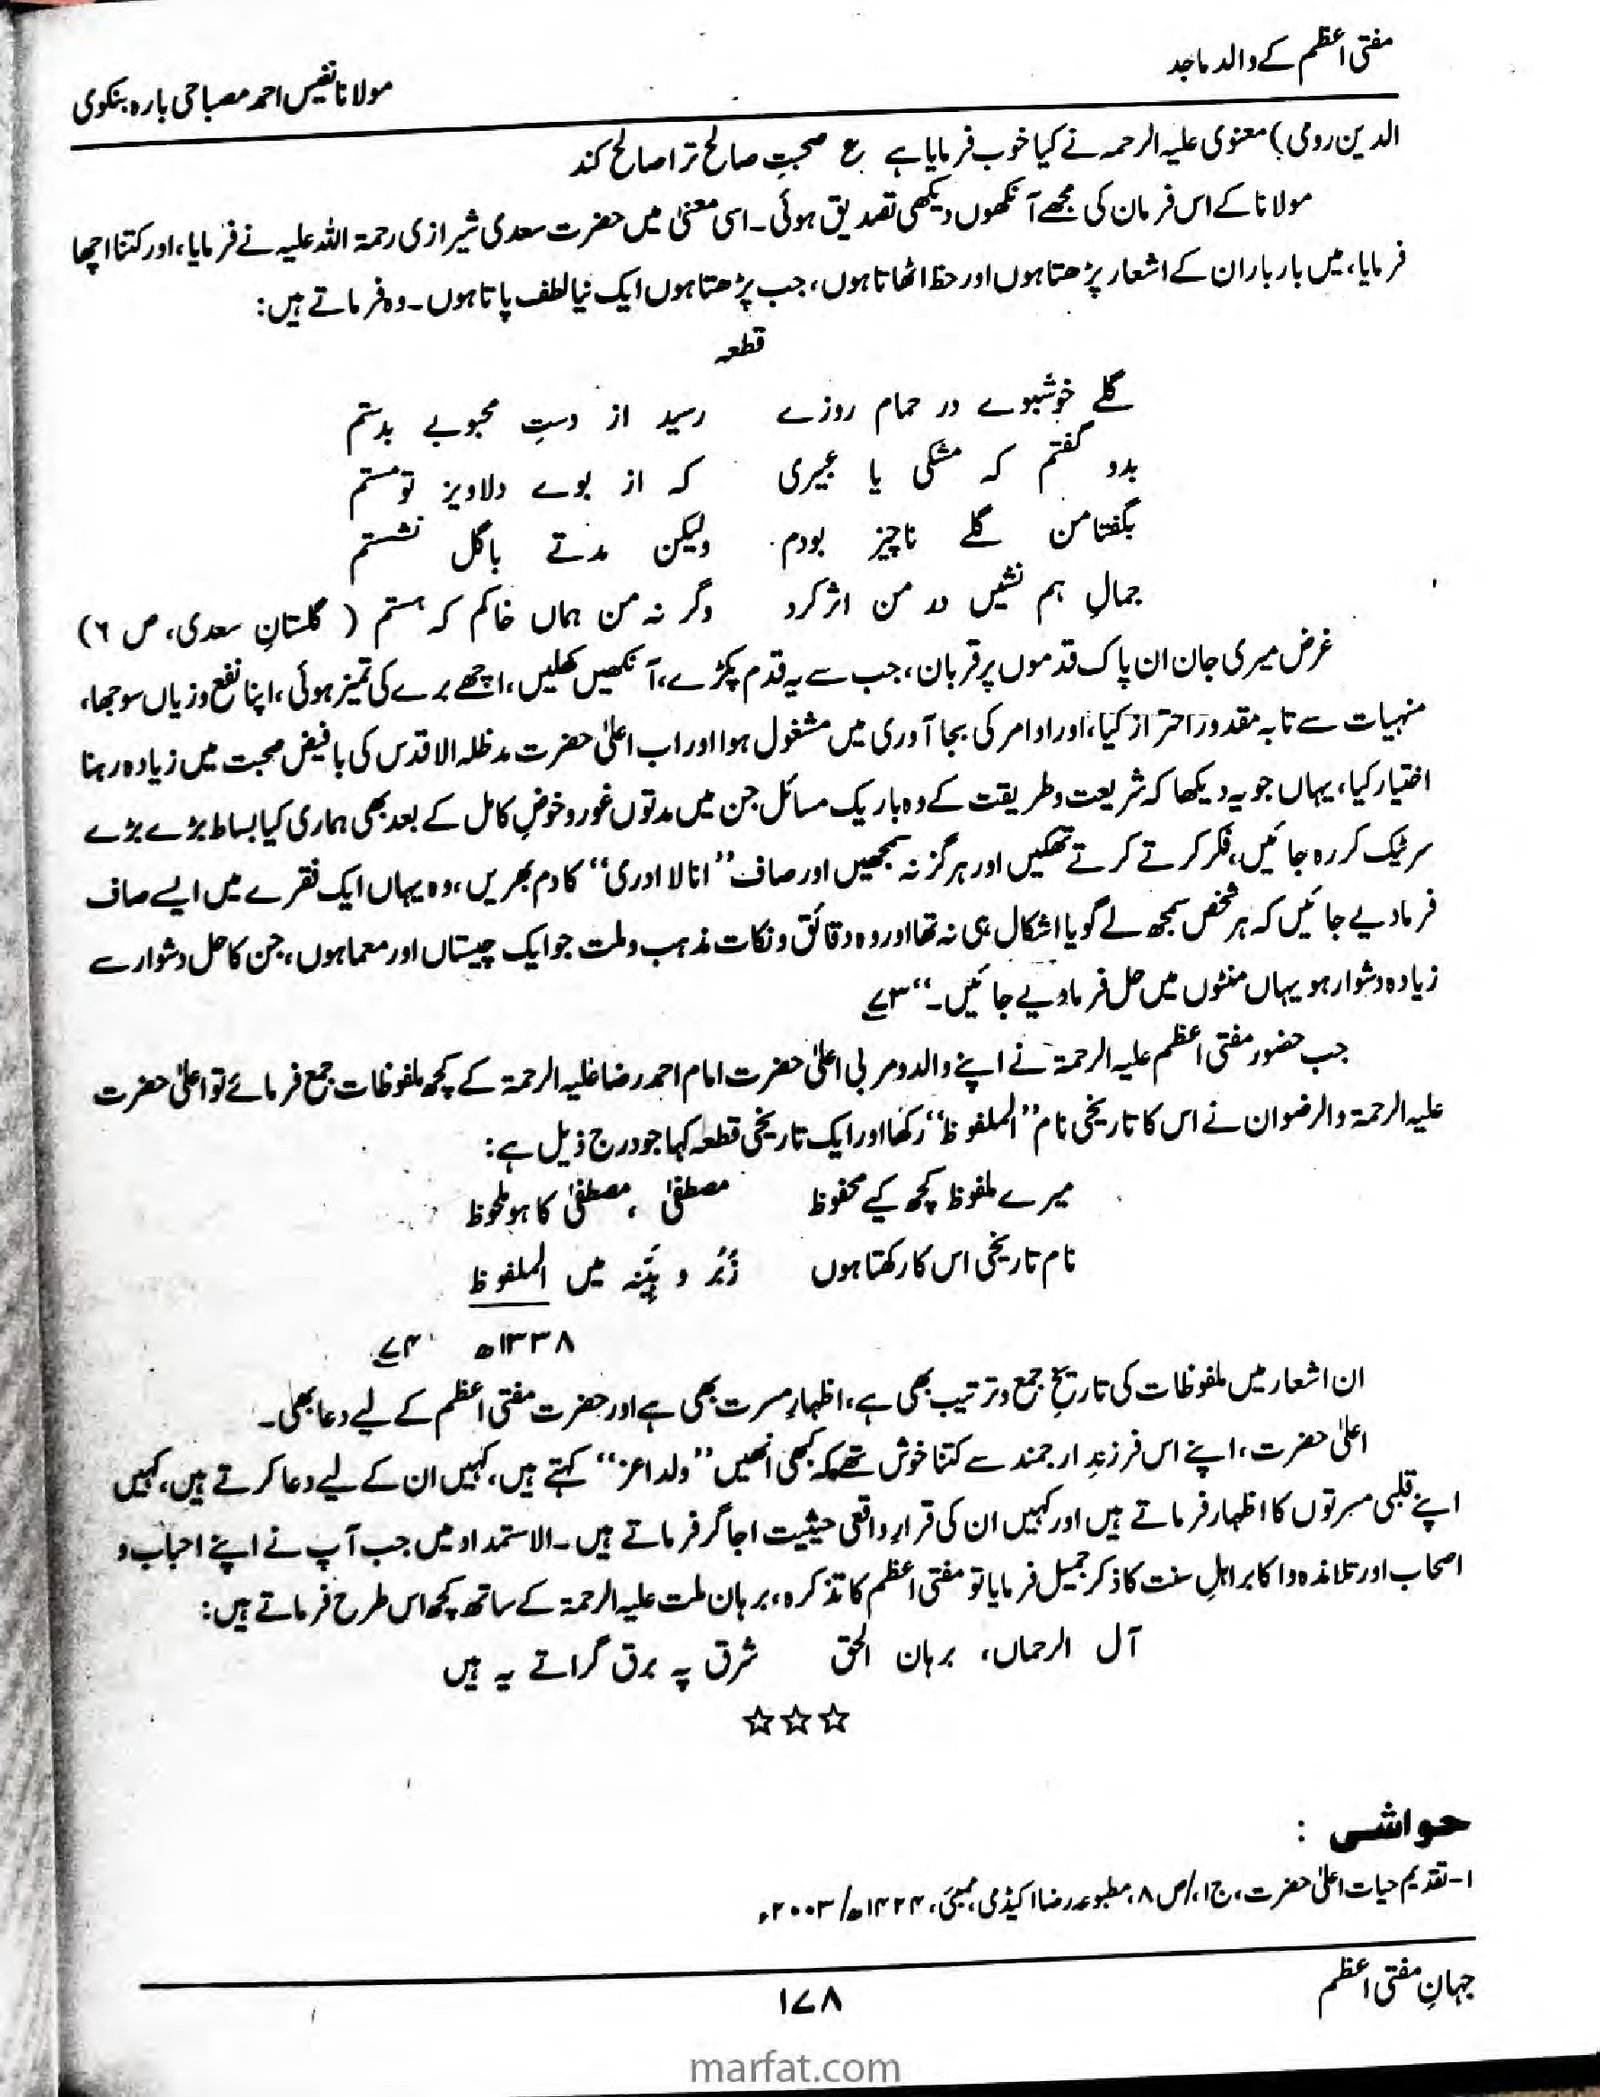 مفتی اعظم کے والد ماجد
مولانا نفیس احمد مصباحی بارہ بنکوی
الدین رومی) معنوی علیہ الرحمہ نے کیا خوب فرمایا ہے ع صحبتِ صالح ترا صالح کند
مولانا کے اس فرمان کی مجھے آنکھوں دیکھی تصدیق ہوئی۔ اسی معنیٰ میں حضرت سعدی شیرازی رحمۃ اللہ علیہ نے فرمایا، اور کتنا اچھا
فرمایا، میں بار بار ان کے اشعار پڑھتا ہوں اور حظ اٹھاتا ہوں، جب پڑھتا ہوں ایک نیا لطف پاتا ہوں۔ وہ فرماتے ہیں:
قطعہ
گلے خوشبوے در حمام روزے رسید از دستِ محبوبے بدستم
بدو گفتم کہ مشکی یا عبیری کہ از بوے دلاویز تو مستم
بگفتا من گلے ناچیز بودم ولیکن مدتے باگل نشستم
جمالِ ہم نشیں در من اثر کرد وگر نہ من ہماں خاکم کہ ہستم (گلستانِ سعدی، ص ٦)
غرض میری جان ان پاک قدموں پر قربان، جب سے یہ قدم پکڑے، آنکھیں کھلیں، اچھے برے کی تمیز ہوئی، اپنا نفع وزیاں سوجھا،
منہیات سے تا بہ مقدور احتراز کیا، اور اوامر کی بجا آوری میں مشغول ہوا اور اب اعلیٰ حضرت مدظلہ الاقدس کی بافیض صحبت میں زیادہ رہنا
اختیار کیا، یہاں جو یہ دیکھا کہ شریعت وطریقت کے وہ باریک مسائل جن میں مدتوں غور وخوضِ کامل کے بعد بھی ہماری کیا بساط بڑے بڑے
سر ٹیک کر رہ جائیں، فکر کرتے کرتے تھکیں اور ہرگز نہ سمجھیں اور صاف ”انا لا ادری“ کا دم بھریں، وہ یہاں ایک فقرے میں ایسے صاف
فرما دیے جائیں کہ ہر شخص سمجھ لے گویا اشکال ہی نہ تھا اور وہ دقائق ونکات مذہب وملت جو ایک چیستاں اور معما ہوں، جن کا حل دشوار سے
زیادہ دشوار ہو یہاں منٹوں میں حل فرما دیے جائیں۔“ ۳؎
جب حضور مفتی اعظم علیہ الرحمۃ نے اپنے والد ومربی اعلیٰ حضرت امام احمد رضا علیہ الرحمۃ کے کچھ ملفوظات جمع فرمائے تو اعلیٰ حضرت
علیہ الرحمۃ والرضوان نے اس کا تاریخی نام ”الملفوظ“ رکھا اور ایک تاریخی قطعہ کہا جو درج ذیل ہے:
میرے ملفوظ کچھ کیے محفوظ مصطفیٰ ، مصطفیٰ کا ہو ملحوظ
نام تاریخی اس کا رکھتا ہوں زُبُر و بیّنہ میں الملفوظ
۱۳۳۸ھ ۴؎
ان اشعار میں ملفوظات کی تاریخِ جمع وترتیب بھی ہے، اظہارِ مسرت بھی ہے اور حضرت مفتی اعظم کے لیے دعا بھی۔
اعلیٰ حضرت، اپنے اس فرزندِ ارجمند سے کتنا خوش تھے کہ کبھی انھیں ”ولد اعز“ کہتے ہیں، کہیں ان کے لیے دعا کرتے ہیں، کہیں
اپنے قلبی مسرتوں کا اظہار فرماتے ہیں اور کہیں ان کی قرارِ واقعی حیثیت اجاگر فرماتے ہیں۔ الاستمداد میں جب آپ نے اپنے احباب و
اصحاب اور تلامذہ واکابر اہلِ سنت کا ذکر جمیل فرمایا تو مفتی اعظم کا تذکرہ، برہان ملت علیہ الرحمۃ کے ساتھ کچھ اس طرح فرماتے ہیں:
آل الرحماں، برہان الحق شرق پہ برق گراتے یہ ہیں
☆☆☆
حواشی :
۱- تقدیم حیات اعلیٰ حضرت، ج ۱،/ص ۸، مطبوعہ رضا اکیڈمی، ممبئی، ۱۴۲۴ھ/ ۲۰۰۳ء
جہانِ مفتی اعظم
۱۷۸
marfat.com